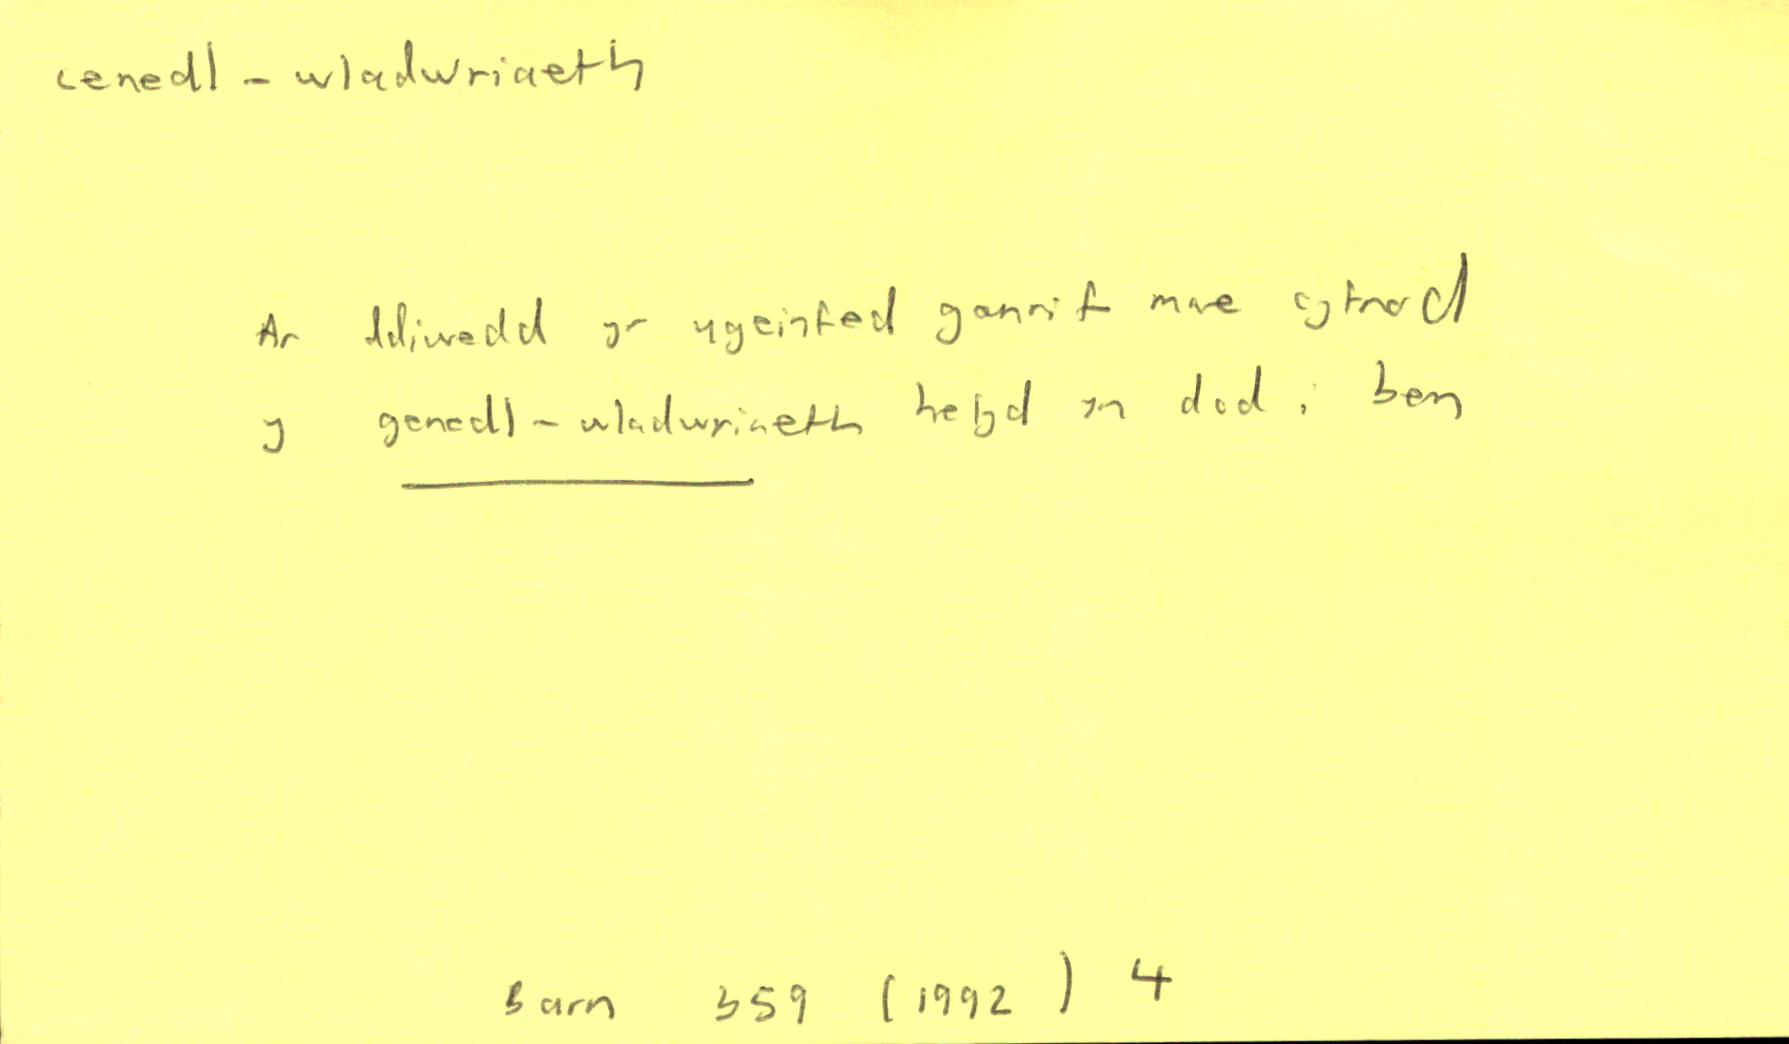 cenedl-wladwriaeth
Ar ddiwedd yr ugeinfed ganrif mae cyfnod
y genedl-wladwriaeth hefyd yn dod i ben
Barn 359 (1992) 4